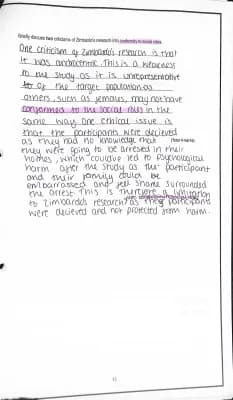 Briefly discuss two criticisms of Zimbardo's research into conformity to social roles.
One criticism of Zimbardo's research is that
it was androcentric. This is a weakness
to the study as it is unrepresentative
of the target population as
others, such as females, may not have
conformed to the social roles in the
same way. One ethical issue is
that the participants were decieved
as they had no knowledge that
they were going to be arrested in their
homes, which could've led to psychological
harm after the study as the participant
and their family could be
embarrassed and feel shame surrounded
the arrest. This is therefore a limitation
to Zimbardo's research as they participants
were decieved and not protected from harm.